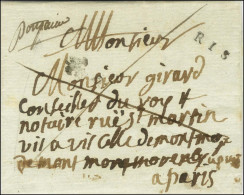 Monsieur
RIS
Monsieur girard
Conseiller du roy
notaire rue st martin
vis a vis celle de montmo
de mont morency
a paris